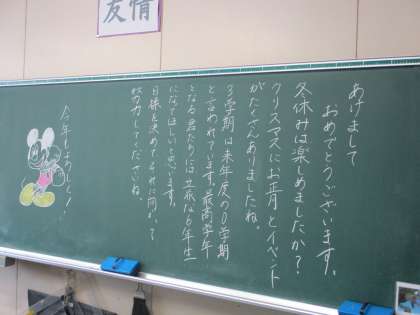 友情
あけまして
おめでとうございます。
冬休みは楽しめましたか?
クリスマスにお正月とイベント
がたくさんありましたね。
3学期は来年度の0学期
と言われています。最高学年
となる君たちには立派な6年生
になってほしいと思います。
目標を決めてそれに向かって
努力してくださいね。
今年もよろしく!